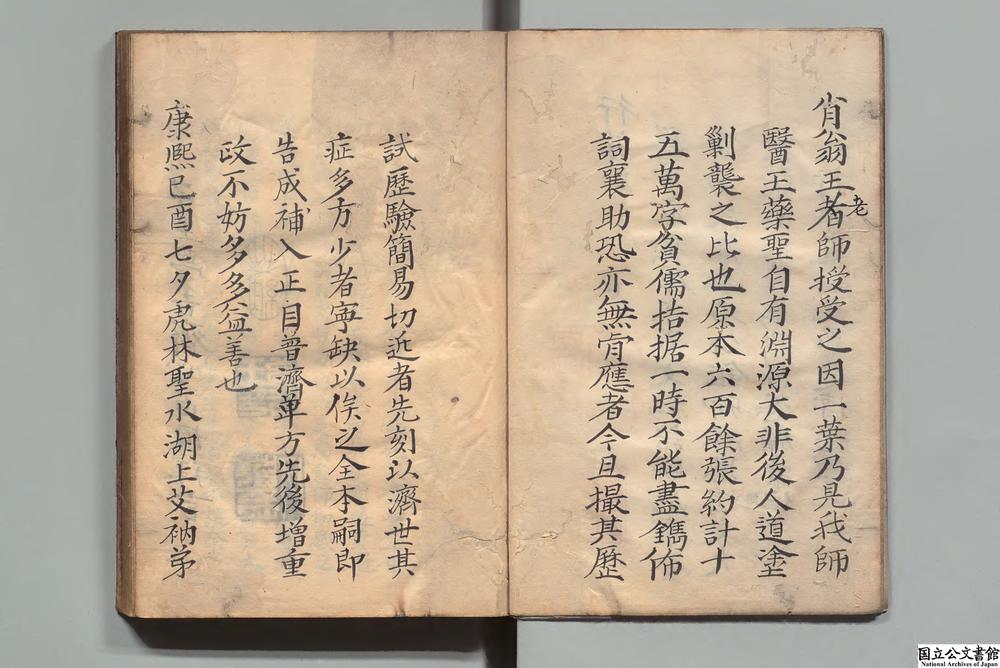 肖翁王老師授受之因一葉乃見我師
醫王藥聖自有淵源大非後人道塗
剿襲之比也原本六百餘張約計十
五萬字貧儒拮据一時不能盡鐫佈
詞襄助恐亦無肯應者今且撮其歷
試歷驗簡易切近者先刻以濟世其
症多方少者寧缺以俟之全本嗣即
告成補入正目普濟單方先後增重
政不妨多多益善也
康熙己酉七夕虎林聖水湖上艾衲弟
国立公文書館
National Archives of Japan